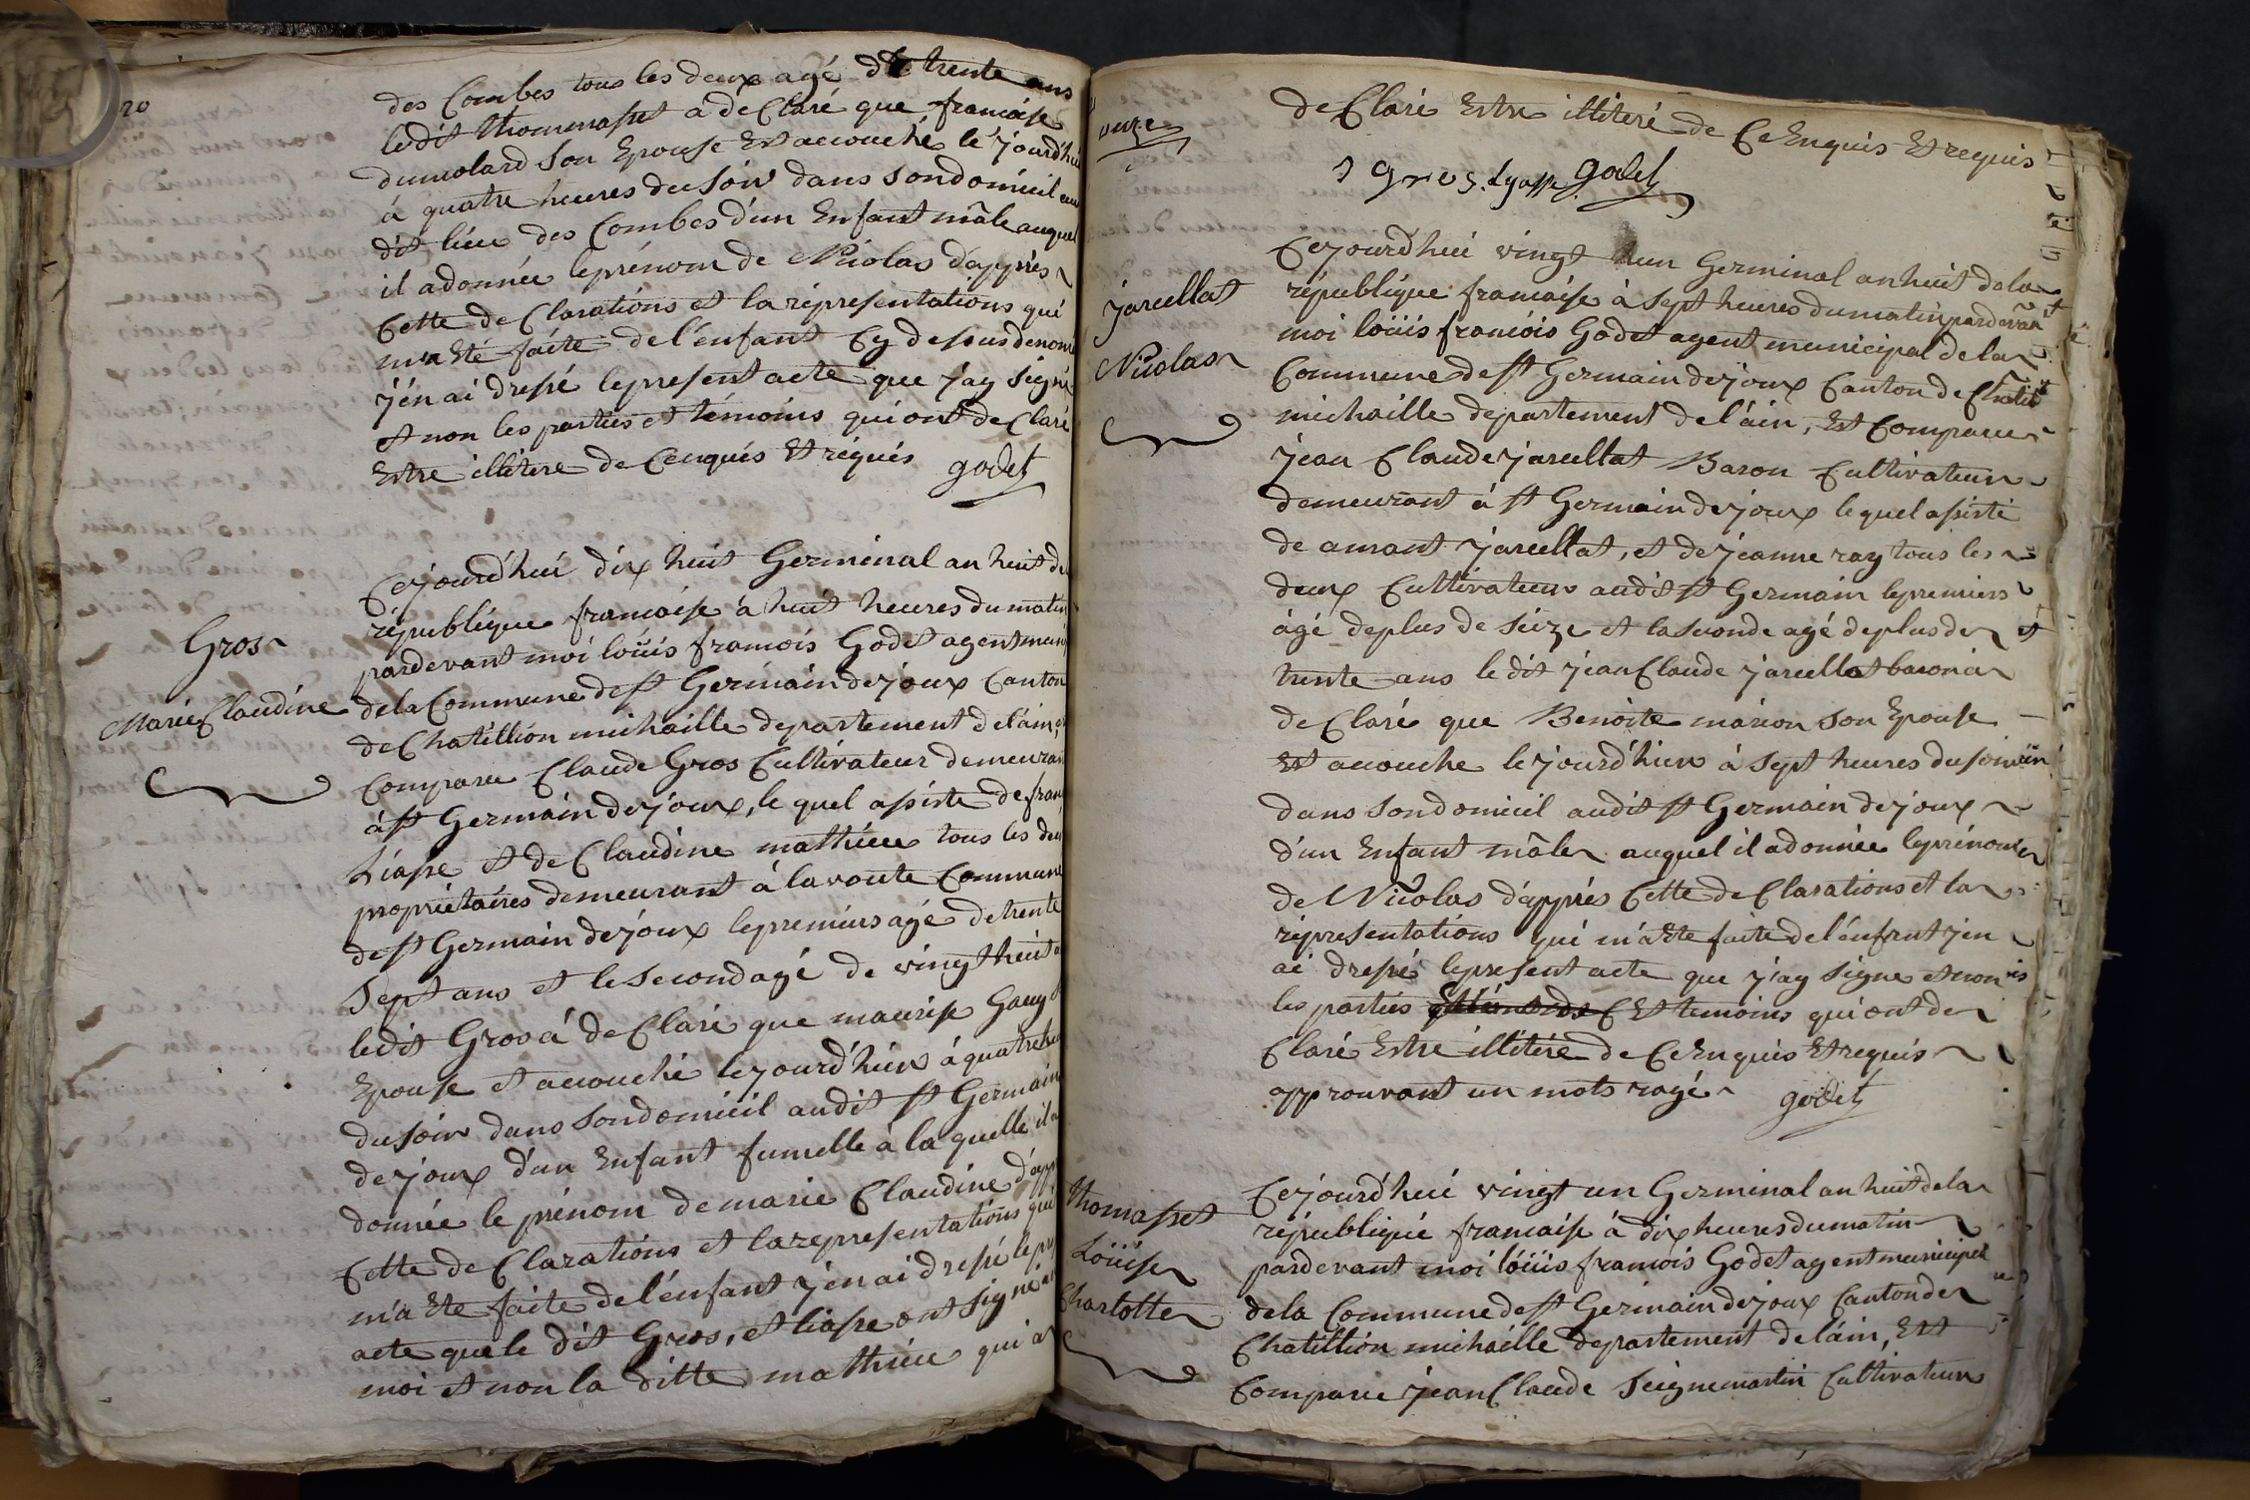 des Combes tous les deux agé de trente ans
ledit thomasset a deClaré que francoise
dumolard son Epouse Est accouché le jourd'hui
á quatre heures du soir dans son domicil au
dit lieu des Combes d'un Enfant mâle auquel
il a donnée le prénom de Nicolas d'apprès
Cette deClarations et la répresentations qui
m'a Eté faite de l'énfant Cy dessus denomé
j'én ai dressé le present acte que j'ay signé
et non les parties et témoins qui ont deClaré
Estre illitere de Ce enquis Et réquis
godet
Gros
Marie Claudine
Cejourd'hui dix huit Germinal an huit de
république francaise a huit heures du matin
pardevant moi loüis francois Godet agent muni
de la Commune de st Germain de joux Canton
de Chatillion michaille departement de l'ain
Comparu Claude Gros Cultivateur demeurant
à st Germain de joux, le quel assiste de fran
Liasse et de Claudine mathieu tous les deux
propriétaires demeurant á la voute Commune
de st Germain de joux le premiers agé de trente
Sept ans et le Second agé de vingt huit
ledit Gros á deClaré que Gauy
Epouse et accouché le jourd'hier á quatre
du soir dans son domicil audit st Germain
de joux d'un Enfant fumelle à la quelle il
donnée le prénom de marie Claudine d'app
Cette deClarations et la representations qui
m'a Ete faite de l'énfant j'en ai dressé le
acte que le dit Gros, et liasse ont signé
moi et non la ditte mathieu qui a
onze
deClaré Estre illiteré de Ce Enquis Et requis
gros. Lyasse godet
jarcellat
Nicolas
Cejourd'hui vingt hun Germinal an huit de la
république francaise à sept heures du matin pardevan
moi loüis francois Godet agent municipal de la
Commune de st Germain de joux Canton de Chatill
michaille departement de l'ain, Est Comparu
jean Claude jarcellat Baron Cultivateur
demeurant á st Germain de joux le quel assisté
de amant jarcellat, et de jeanne ray tous les
deux Cultivateur audit st Germain le premiers
âgé de plus de seize et la seconde agé de plus de
trente ans le dit jean Claude jarcellat baron a
deClaré que Benoite marion son Epouse
Est accouche le jourd'hier à Sept heures du soir
dans son domicil audit st Germain de joux
d'un Enfant mâle auquel il a donnée le prénom
de Nicolas d'apprès Cette deClarations et la
répresentations qui m'a Ete faite de l'énfant j'en
ai dressé le present acte que j'ay signe et non
les parties Et temoins qui ont de
Claré Estre illitéré de Ce Enquis Et requis
approuvant un mots rayé godet
thomasset
Loüise
Charlotte
Cejourd'hui vingt un Germinal an huit de la
république francaise á dix heures du matin
pardevant moi loüis francois Godet agent municipal
de la Commune de st Germain de joux Canton de
Chatillion michaille departement de l'ain, Est
Comparu jean Claude Seignemartin Cultivateur